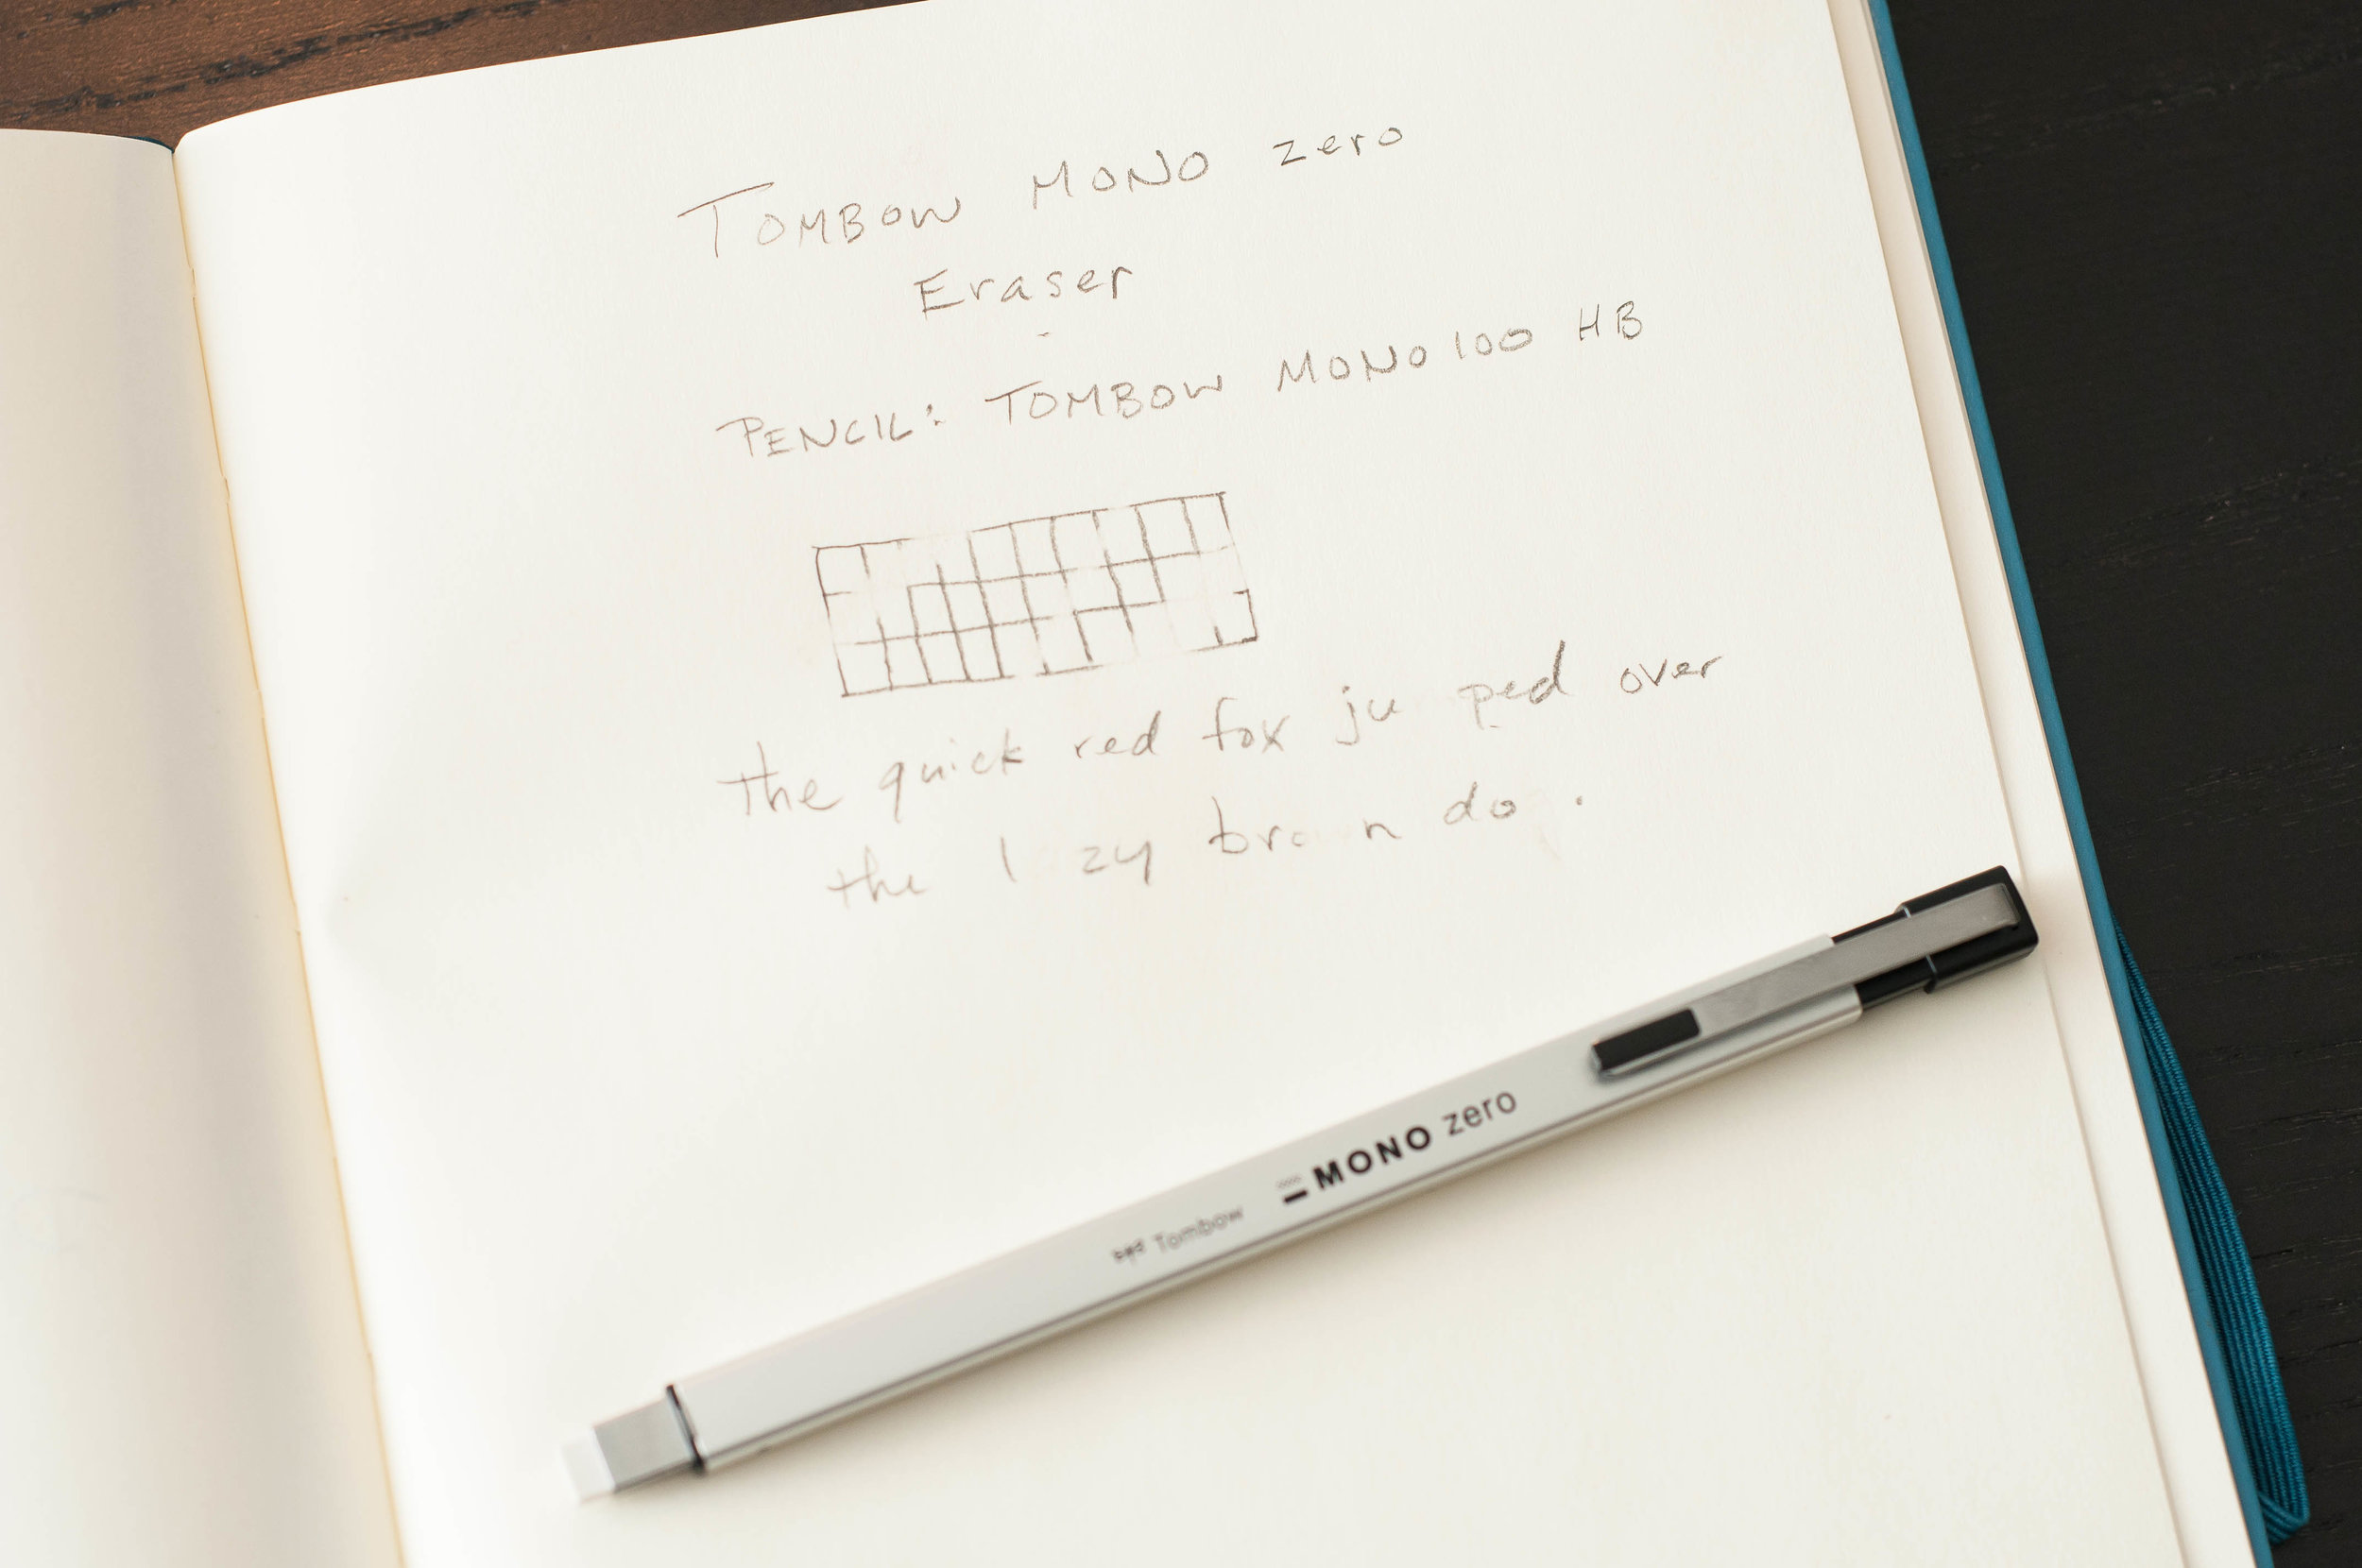 TOMBOW MONO zero
Eraser
PENCIL: TOMBOW MONO 100 HB
the quick red fox ju ped over
the l zy bro n do .
MONO zero
Tombow